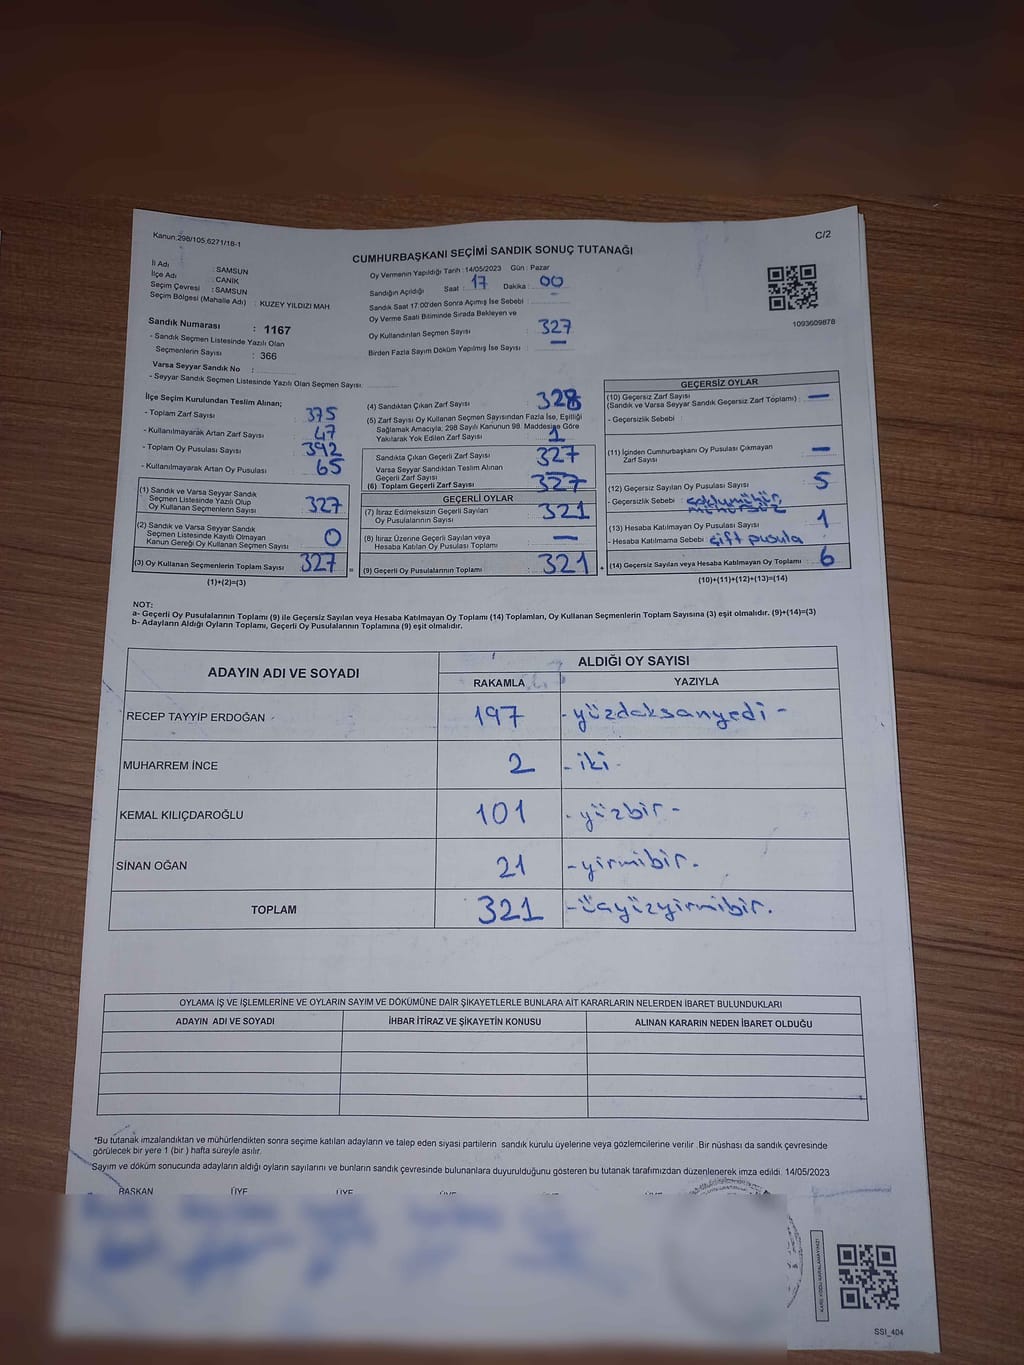 Kanun.298/105.6271/18-1
C/2
CUMHURBAŞKANI SEÇİMİ SANDIK SONUÇ TUTANAĞI
İl Adı : SAMSUN
İlçe Adı : CANİK
Seçim Çevresi : SAMSUN
Seçim Bölgesi (Mahalle Adı) : KUZEY YILDIZI MAH.
Sandık Numarası : 1167
- Sandık Seçmen Listesinde Yazılı Olan
Seçmenlerin Sayısı : 366
Varsa Seyyar Sandık No :
- Seyyar Sandık Seçmen Listesinde Yazılı Olan Seçmen Sayısı
Oy Vermenin Yapıldığı Tarih : 14/05/2023 Gün : Pazar
Sandığın Açıldığı Saat : 17 Dakika : 00
Sandık Saat 17:00'den Sonra Açımış İse Sebebi :
Oy Verme Saati Bitiminde Sırada Bekleyen ve
Oy Kullandırılan Seçmen Sayısı : 327
Birden Fazla Sayım Döküm Yapılmış İse Sayısı : —
1093609878
İlçe Seçim Kurulundan Teslim Alınan;
- Toplam Zarf Sayısı 375
- Kullanılmayarak Artan Zarf Sayısı 47
- Toplam Oy Pusulası Sayısı 392
- Kullanılmayarak Artan Oy Pusulası 65
(1) Sandık ve Varsa Seyyar Sandık
Seçmen Listesinde Yazılı Olup
Oy Kullanan Seçmenlerin Sayısı 327
(2) Sandık ve Varsa Seyyar Sandık
Seçmen Listesinde Kayıtlı Olmayan
Kanun Gereği Oy Kullanan Seçmen Sayısı 0
(3) Oy Kullanan Seçmenlerin Toplam Sayısı 327 =
(1)+(2)=(3)
(4) Sandıktan Çıkan Zarf Sayısı 328
(5) Zarf Sayısı Oy Kullanan Seçmen Sayısından Fazla İse, Eşitliği
Sağlamak Amacıyla, 298 Sayılı Kanunun 98. Maddesine Göre
Yakılarak Yok Edilen Zarf Sayısı 1
Sandıkta Çıkan Geçerli Zarf Sayısı 327
Varsa Seyyar Sandıktan Teslim Alınan
Geçerli Zarf Sayısı —
(6) Toplam Geçerli Zarf Sayısı 327
GEÇERLİ OYLAR
(7) İtiraz Edilmeksizin Geçerli Sayılan
Oy Pusulalarının Sayısı 321
(8) İtiraz Üzerine Geçerli Sayılan veya
Hesaba Katılan Oy Pusulası Toplamı —
(9) Geçerli Oy Pusulalarının Toplamı 321 +
GEÇERSİZ OYLAR
(10) Geçersiz Zarf Sayısı
(Sandık ve Varsa Seyyar Sandık Geçersiz Zarf Toplamı) : —
- Geçersizlik Sebebi :
(11) İçinden Cumhurbaşkanı Oy Pusulası Çıkmayan
Zarf Sayısı —
(12) Geçersiz Sayılan Oy Pusulası Sayısı 5
- Geçersizlik Sebebi :
(13) Hesaba Katılmayan Oy Pusulası Sayısı 1
- Hesaba Katılmama Sebebi çift pusula
(14) Geçersiz Sayılan veya Hesaba Katılmayan Oy Toplamı : 6
(10)+(11)+(12)+(13)=(14)
NOT:
a- Geçerli Oy Pusulalarının Toplamı (9) ile Geçersiz Sayılan veya Hesaba Katılmayan Oy Toplamı (14) Toplamları, Oy Kullanan Seçmenlerin Toplam Sayısına (3) eşit olmalıdır. (9)+(14)=(3)
b- Adayların Aldığı Oyların Toplamı, Geçerli Oy Pusulalarının Toplamına (9) eşit olmalıdır.
ADAYIN ADI VE SOYADI ALDIĞI OY SAYISI
RAKAMLA YAZIYLA
RECEP TAYYİP ERDOĞAN 197 - yüzdoksanyedi -
MUHARREM İNCE 2 - iki -
KEMAL KILIÇDAROĞLU 101 - yüzbir -
SİNAN OĞAN 21 - yirmibir.
TOPLAM 321 - üçyüzyirmibir.
OYLAMA İŞ VE İŞLEMLERİNE VE OYLARIN SAYIM VE DÖKÜMÜNE DAİR ŞİKAYETLERLE BUNLARA AİT KARARLARIN NELERDEN İBARET BULUNDUKLARI
ADAYIN ADI VE SOYADI İHBAR İTİRAZ VE ŞİKAYETİN KONUSU ALINAN KARARIN NEDEN İBARET OLDUĞU
*Bu tutanak imzalandıktan ve mühürlendikten sonra seçime katılan adayların ve talep eden siyasi partilerin sandık kurulu üyelerine veya gözlemcilerine verilir. Bir nüshası da sandık çevresinde
görülecek bir yere 1 (bir) hafta süreyle asılır.
Sayım ve döküm sonucunda adayların aldığı oyların sayılarını ve bunların sandık çevresinde bulunanlara duyurulduğunu gösteren bu tutanak tarafımızdan düzenlenerek imza edildi. 14/05/2023
BAŞKAN ÜYE ÜYE ÜYE ÜYE ÜYE
KARE KODU KARALAMAYINIZ!
SSI_404